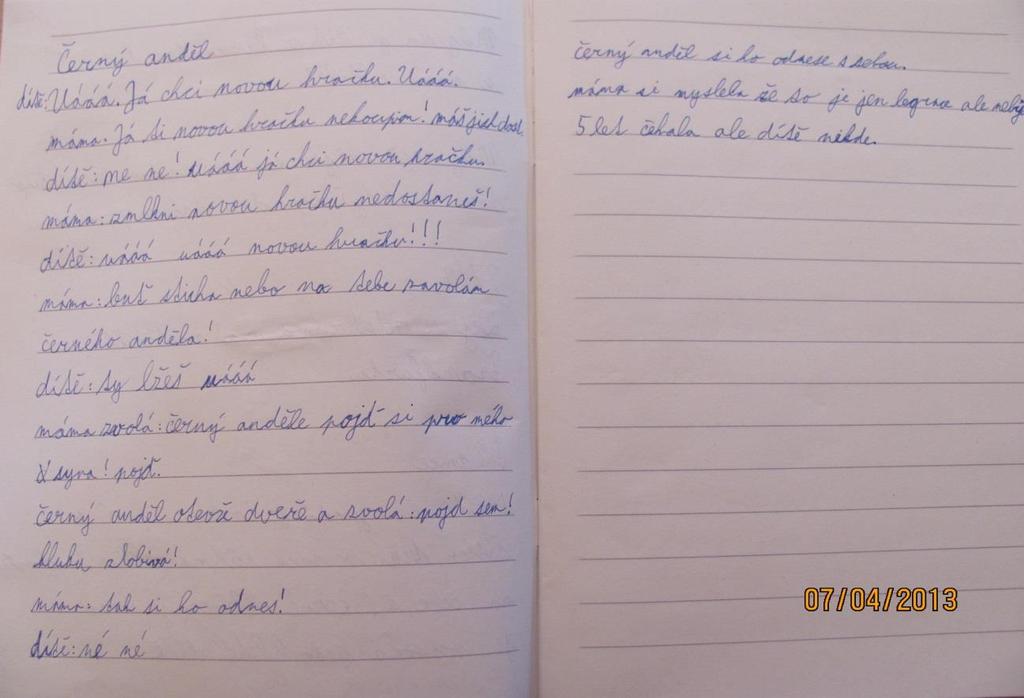 Černý anděl
dítě: Uááá. Já chci novou hračku. Uááá.
máma. Já ti novou hračku nekoupím! máš jich dost.
dítě: ne né! uááá já chci novou hračku.
máma: zmlkni novou hračku nedostaneš!
dítě: uááá uááá novou hračku!!!
máma: buť sticha nebo na tebe zavolám
černého anděla!
dítě: ty lžeš uááá
máma zvolá: černý anděle pojď si pro mého
syna! pojď.
černý anděl otevře dveře a zvolá: pojd sem!
kluku zlobivá!
máma: tak si ho odnes!
dítě: né né
černý anděl si ho odnese s sebou.
máma si myslela že to je jen legrace ale
5 let čekala ale dítě nikde.
07/04/2013